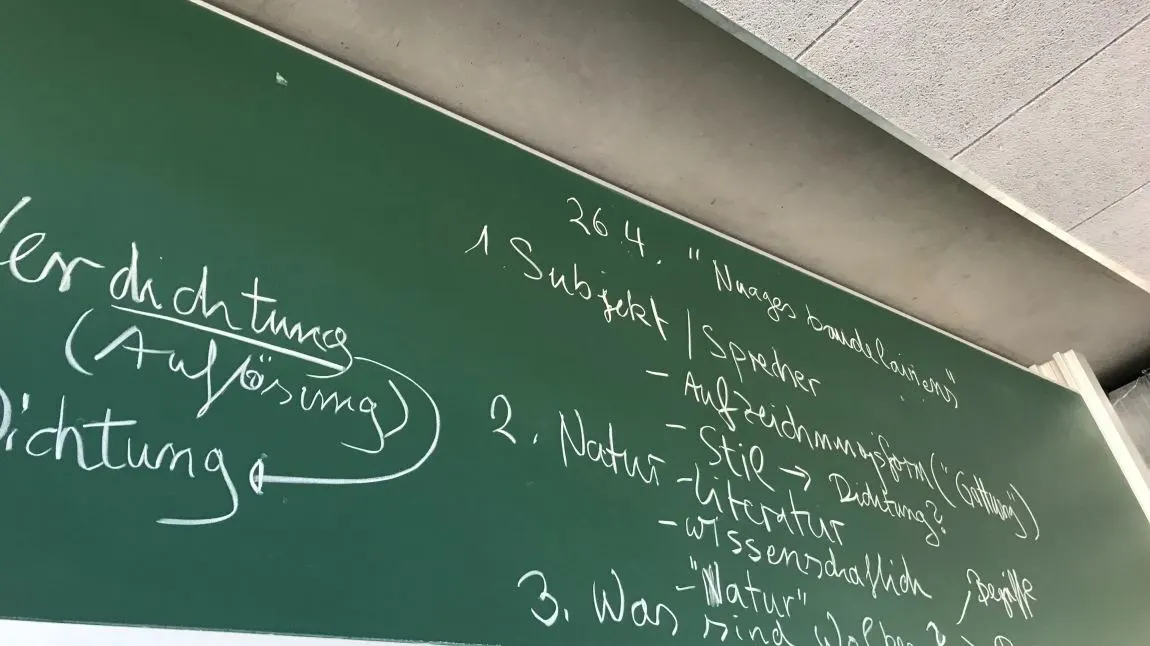 Verdichtung
(Auflösung)
Dichtung
26.4. "Nuages baudelairiens"
1. Subjekt / Sprecher
- Aufzeichnungsform ("Gattung")
- Stil → Dichtung?
2. Natur - Literatur
- wissenschaftlich
- "Natur"
Begriffe
3. Was sind Wolken? →